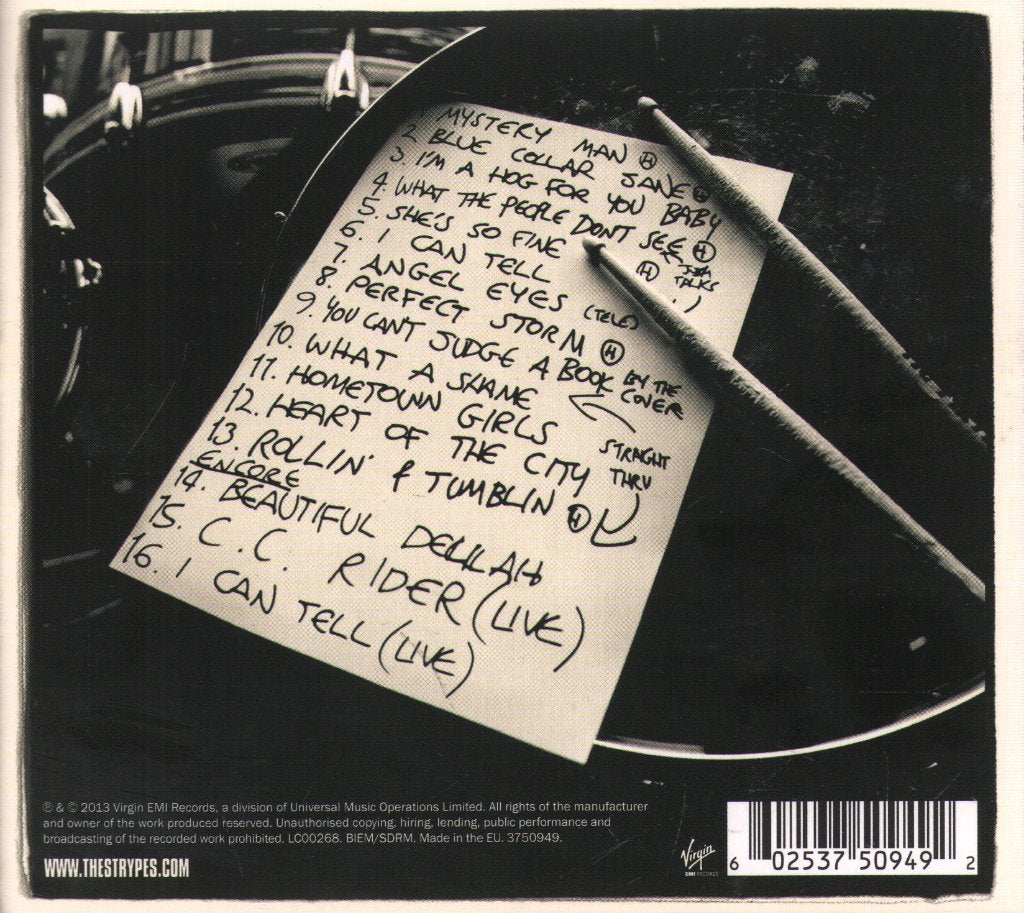 MYSTERY MAN Ⓗ
2. BLUE COLLAR JANE Ⓗ
3. I'M A HOG FOR YOU BABY
4. WHAT THE PEOPLE DON'T SEE Ⓗ
5. SHE'S SO FINE
6. I CAN TELL Ⓗ
TALKS
7. ANGEL EYES (TELE)
8. PERFECT STORM Ⓗ
9. YOU CAN'T JUDGE A BOOK BY THE COVER
10. WHAT A SHAME
11. HOMETOWN GIRLS
STRAIGHT THRU
12. HEART OF THE CITY
13. ROLLIN' & TUMBLIN Ⓗ
ENCORE
14. BEAUTIFUL DELILAH
15. C.C. RIDER (LIVE)
16. I CAN TELL (LIVE)
℗ & © 2013 Virgin EMI Records, a division of Universal Music Operations Limited. All rights of the manufacturer
and owner of the work produced reserved. Unauthorised copying, hiring, lending, public performance and
broadcasting of the recorded work prohibited. LC00268. BIEM/SDRM. Made in the EU. 3750949.
WWW.THESTRYPES.COM
Virgin
EMI RECORDS
6 02537 50949 2